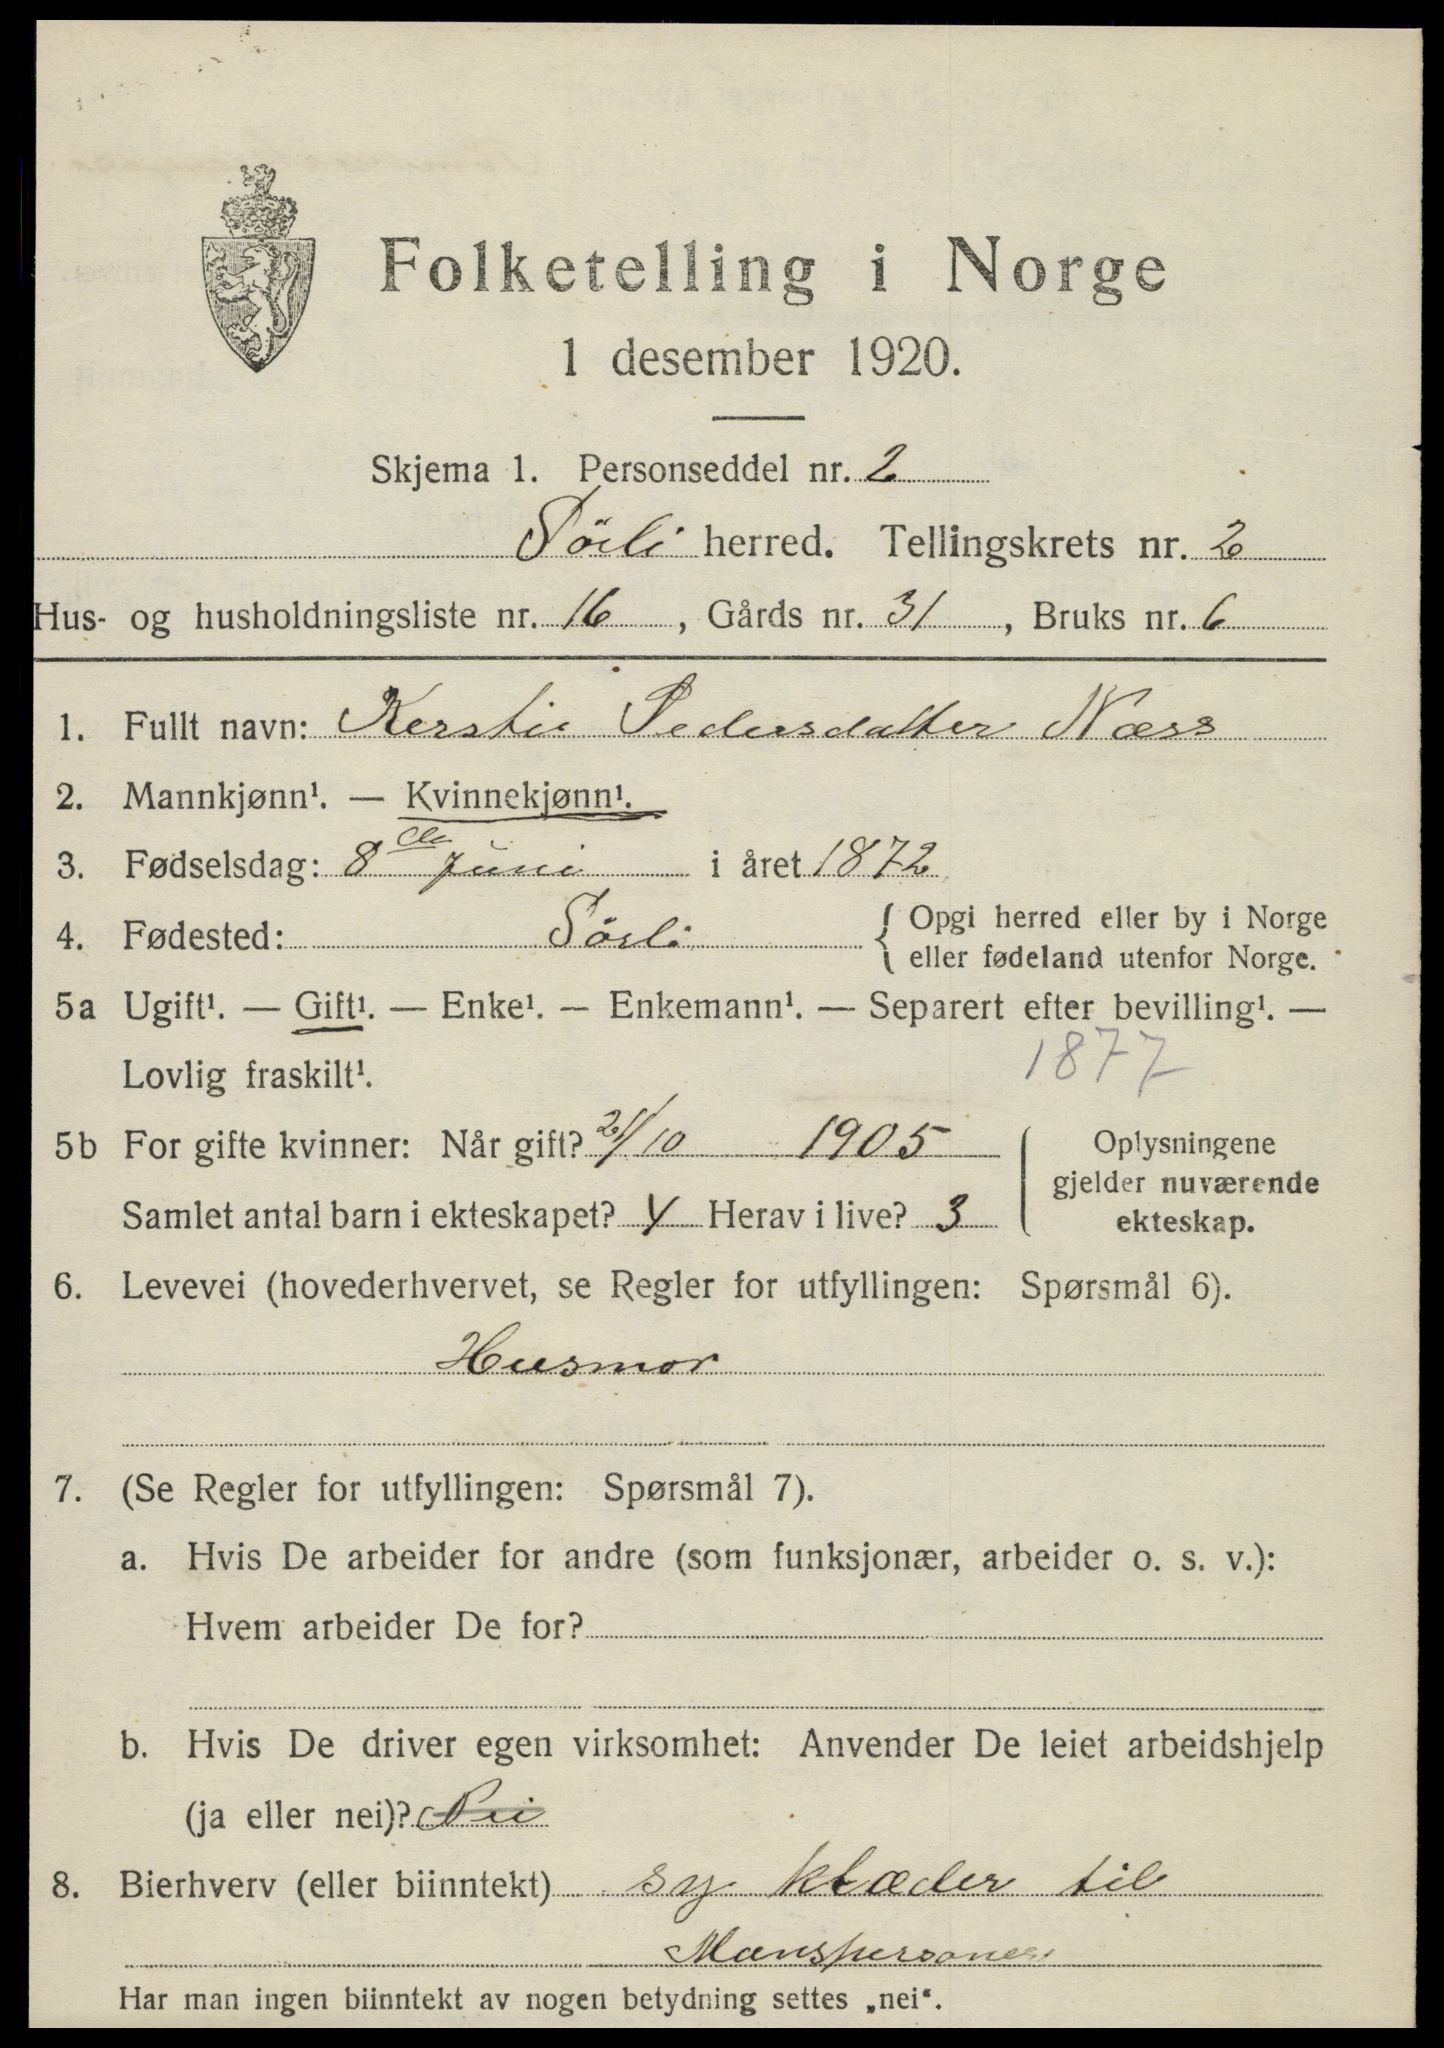 Folketelling i Norge
1 desember 1920.
Skjema 1. Personseddel nr. 2
Sörli herred. Tellingskrets nr. 2
Hus- og husholdningsliste nr. 16, Gårds nr. 31, Bruks nr. 6
1. Fullt navn: Kerstie Pedersdatter Næss
2. Mannkjønn¹. — Kvinnekjønn¹.
3. Fødselsdag: 8de juni i året 1872
4. Fødested: Sörli { Opgi herred eller by i Norge
eller fødeland utenfor Norge.
5a Ugift¹. — Gift¹. — Enke¹. — Enkemann¹. — Separert efter bevilling¹. —
Lovlig fraskilt¹. 1877
5b For gifte kvinner: Når gift? 21/10 1905
Samlet antal barn i ekteskapet? 4 Herav i live? 3
{ Oplysningene
gjelder nuværende
ekteskap.
6. Levevei (hovederhvervet, se Regler for utfyllingen: Spørsmål 6).
Husmor
7. (Se Regler for utfyllingen: Spørsmål 7).
a. Hvis De arbeider for andre (som funksjonær, arbeider o. s. v.):
Hvem arbeider De for?
b. Hvis De driver egen virksomhet: Anvender De leiet arbeidshjelp
(ja eller nei)? Nei
8. Bierhverv (eller biinntekt) sy klæder til
Manspersoner
Har man ingen biinntekt av nogen betydning settes „nei“.